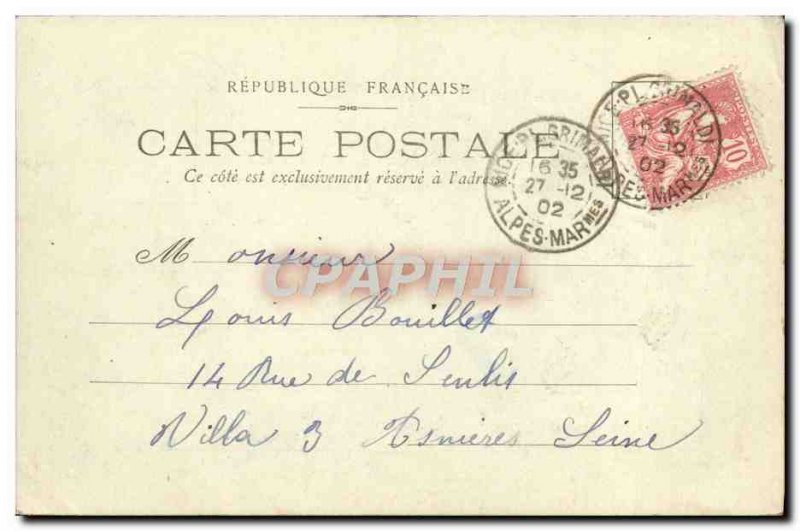 RÉPUBLIQUE FRANÇAISE
CARTE POSTALE
Ce côté est exclusivement réservé à l'adresse.
NICE-PL. GRIMALDI
16 35
27 -12
02
ALPES-MARMES
NICE-PL. GRIMALDI
16 35
27 -12
02
ALPES-MARMES
10
POSTES
CPAPHIL
Monsieur
Louis Bouillet
14 Rue de Senlis
Villa 3 Asnières Seine